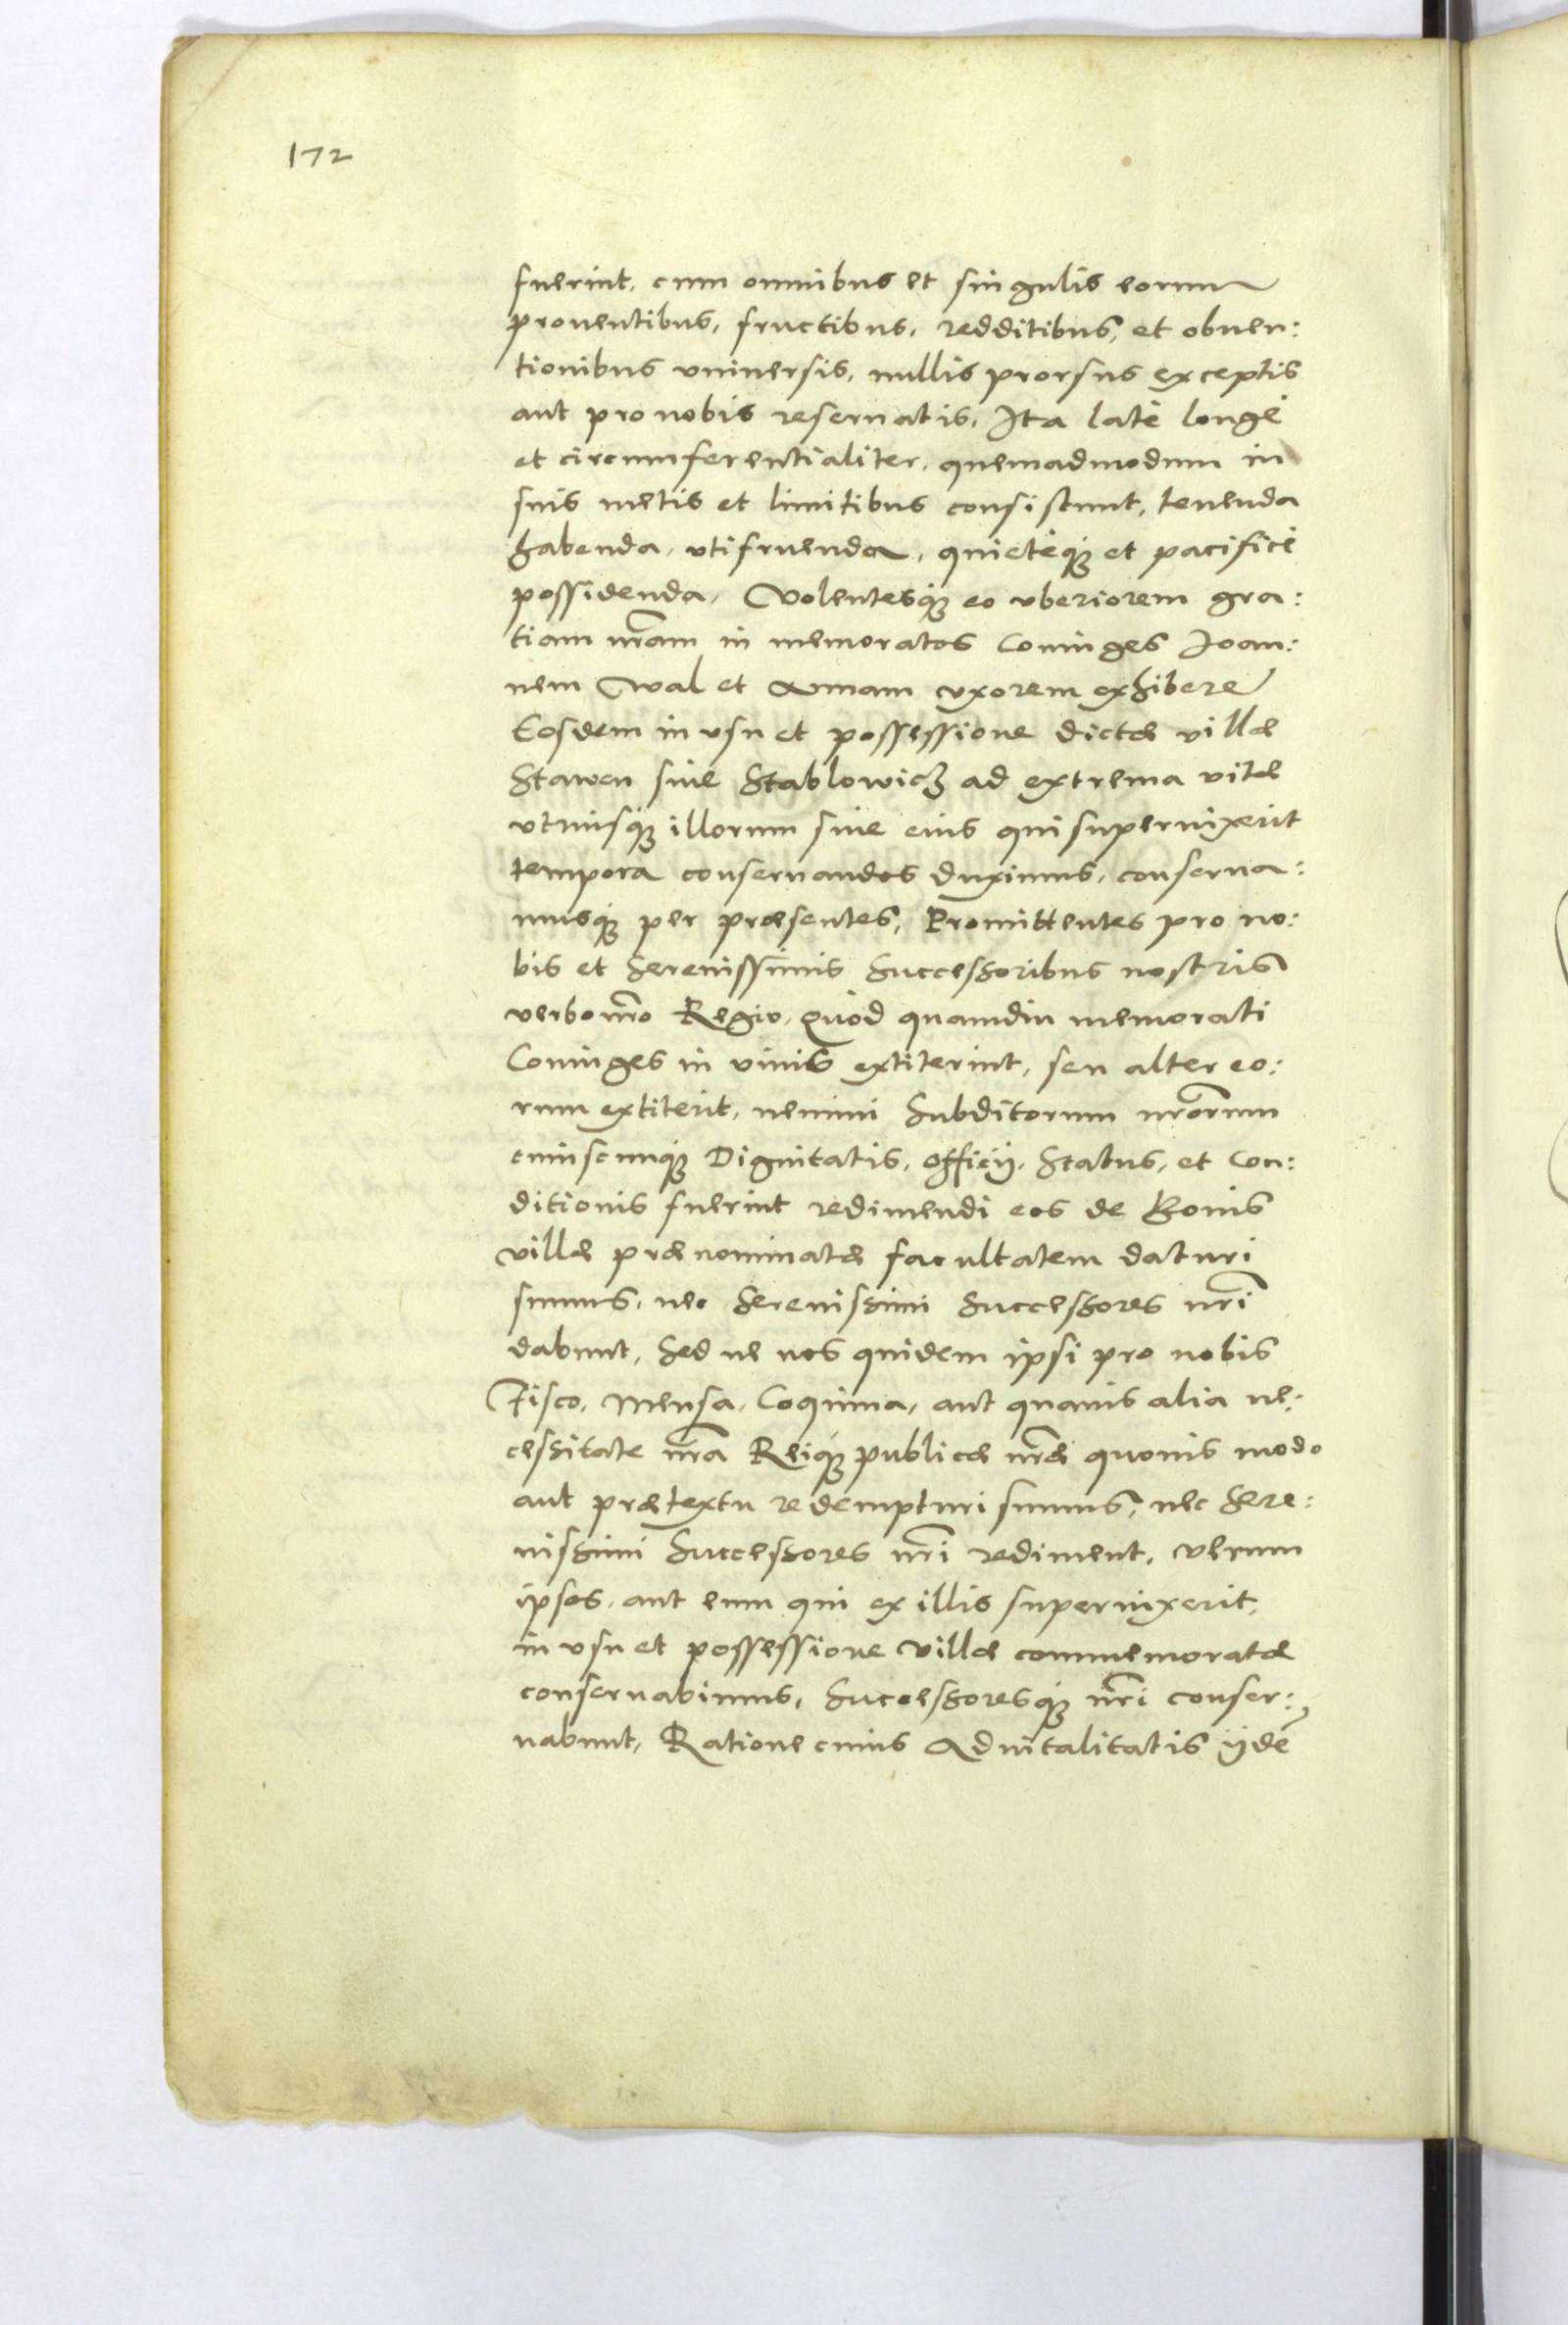 172
fuerint, cum omnibus et singulis eorum
prouentibus, fructibus, redditibus, et obuen:
tionibus vniuersis, nullis prorsus exceptis
aut pro nobis reseruatis, Ita latè longè
et circumferentialiter, quemadmodum in
suis metis et limitibus consistunt, tenenda
habenda, vtifruenda, quietèq́ȝ et pacificè
possidenda, Volentesq́ȝ eo vberiorem gra:
tiam nr̃am in memoratos Coniuges Joan:
nem Wal et Annam vxorem exhibere
Eosdem in vsu et possessione dictæ villæ
Stawen siue Stablowicz ad extrema vitæ
vtriusq́ȝ illorum siue eius qui superuixerit
tempora conseruandos duximus, conserua:
musq́ȝ per præsentes, Promittentes pro no:
bis et Serenissimis Successoribus nostris
verbo nr̃o Regio, quòd quamdiu memorati
Coniuges in viuis extiterint, seu alter eo:
rum extiterit, nemini Subditorum nr̃orum
cuiuscunq́ȝ Dignitatis, officij, Status, et Con:
ditionis fuerint redimendi eos de Bonis
villæ prænominatæ facultatem daturi
sumus, nec Serenissimi Successores nr̃i
dabunt, Sed ne nos quidem ipsi pro nobis
Fisco, Mensa, Coquina, aut quauis alia ne:
cessitate nr̃a Reiq́ȝ publicæ nr̃æ quouis modo
aut prætextu redempturi sumus, nec Sere:
nissimi Successores nr̃i rediment, verum
ipsos, aut eum qui ex illis superuixerit,
in vsu et possessione villæ commemoratæ
conseruabimus, Successoresq́ȝ nr̃i conser:
uabunt, Ratione cuius Aduitalitatis ijdẽ